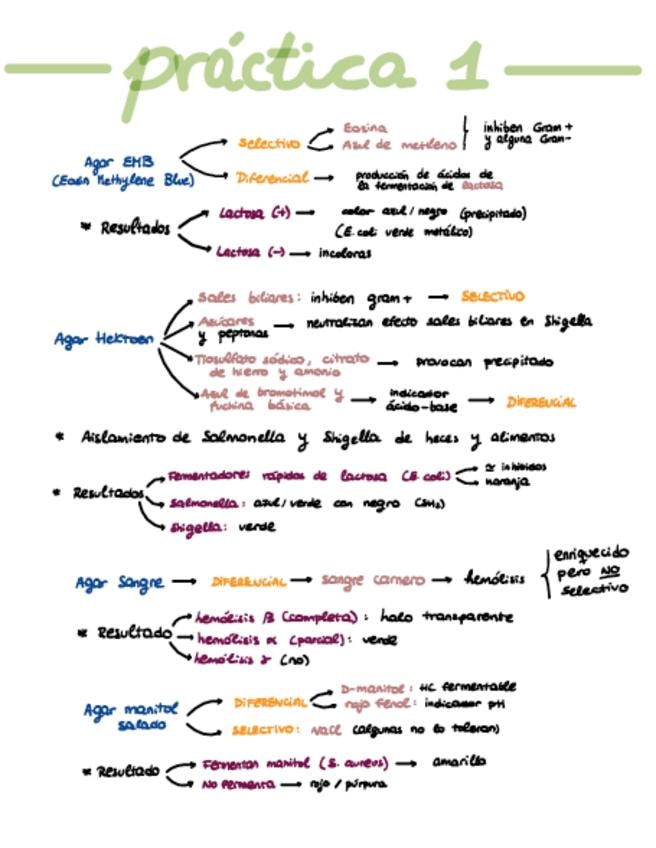 práctica 1
Agar EMB
(Eosin Methylene Blue)
Selectivo
Eosina
Azul de metileno
inhiben Gram +
y alguna Gram-
Diferencial
producción de ácidos de
la fermentación de lactosa
* Resultados
Lactosa (+)
color azul/negro (precipitado)
(E.coli verde metálico)
Lactosa (-)
incoloras
Agar Hektoen
Sales biliares: inhiben gram+
SELECTIVO
Azúcares
y peptonas
neutralizan efecto sales biliares en Shigella
Tiosulfato sódico, citrato
de hierro y amonio
provocan precipitado
Azul de bromotimol y
fuchina básica
indicador
ácido-base
DIFERENCIAL
* Aislamiento de Salmonella y Shigella de heces y alimentos
* Resultados
Fermentadores rápidos de lactosa (E.coli)
≃ inhibidos
naranja
Salmonella: azul/verde con negro (SH₂)
Shigella: verde
Agar Sangre
DIFERENCIAL
sangre carnero
hemólisis
enriquecido
pero NO
selectivo
* Resultado
hemólisis β (completa): halo transparente
hemólisis α (parcial): verde
hemólisis γ (no)
Agar manitol
salado
DIFERENCIAL
D-manitol: HC fermentable
rojo fenol: indicador pH
SELECTIVO: NaCl (algunas no lo toleran)
* Resultado
Fermentan manitol (S. aureus)
amarillo
No fermenta
rojo / púrpura